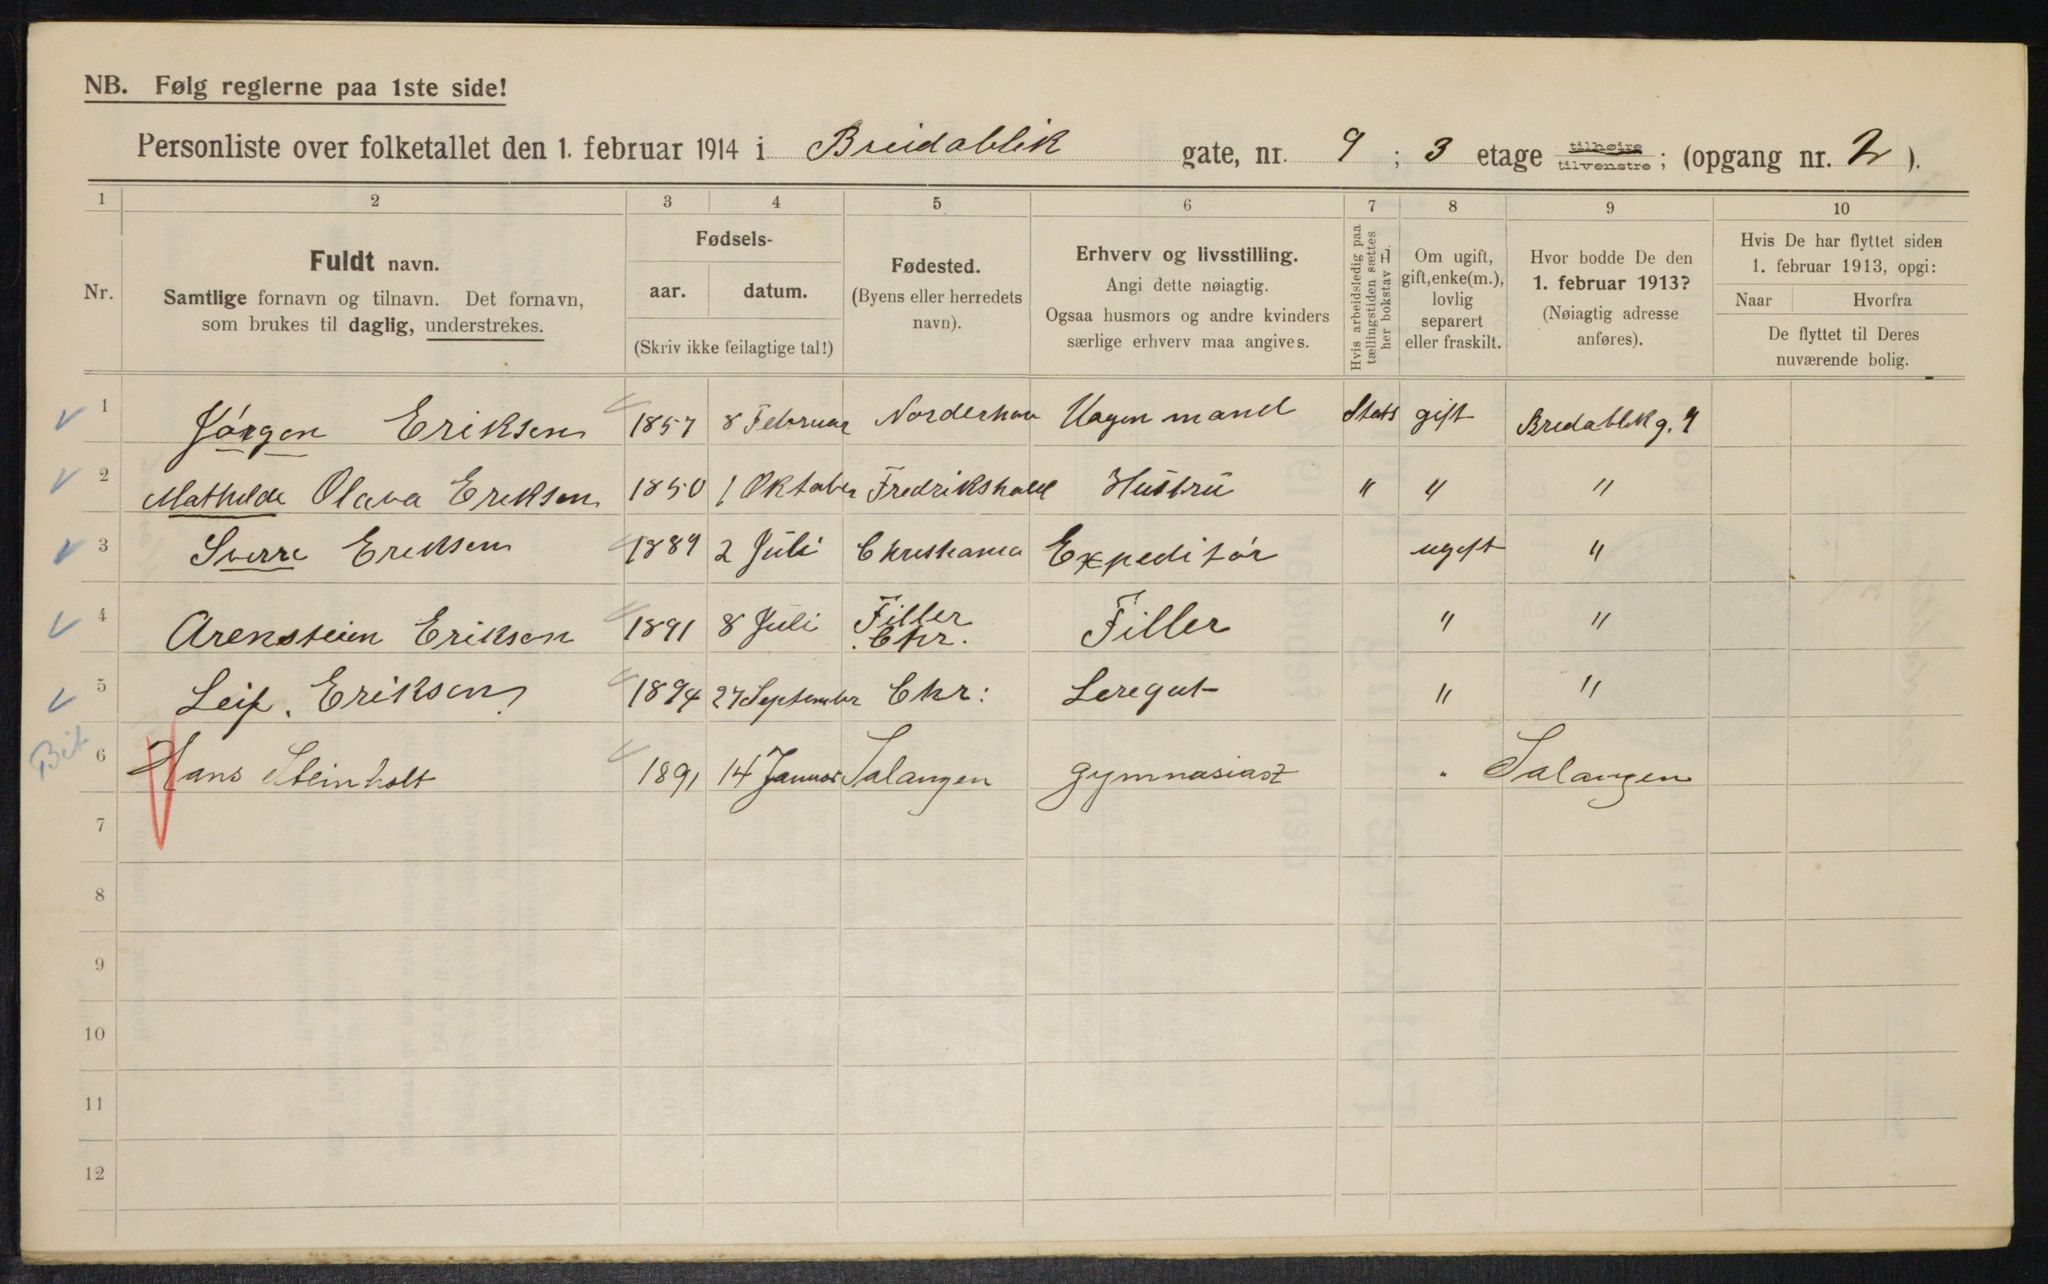 NB. Følg reglerne paa 1ste side!
Personliste over folketallet den 1. februar 1914 i Breidablik gate, nr. 9 ; 3 etage tilhøire tilvenstre ; (opgang nr. 2 ).
1 2 3 4 5 6 7 8 9 10
Nr.
Fuldt navn.
Samtlige fornavn og tilnavn. Det fornavn,
som brukes til daglig, understrekes.
Fødsels-
aar. datum.
(Skriv ikke feilagtige tal!)
Fødested.
(Byens eller herredets
navn).
Erhverv og livsstilling.
Angi dette nøiagtig.
Ogsaa husmors og andre kvinders
særlige erhverv maa angives.
Hvis arbeidsledig paa
tællingstiden sættes
her bokstav L.
Om ugift,
gift, enke(m.),
lovlig
separert
eller fraskilt.
Hvor bodde De den
1. februar 1913?
(Nøiagtig adresse
anføres).
Hvis De har flyttet siden
1. februar 1913, opgi:
Naar Hvorfra
De flyttet til Deres
nuværende bolig.
1 Jørgen Eriksen 1857 8 Februar Norderhov Vagnmand Stats gift Bredablikg. 9
2 Mathilde Olava Eriksen 1850 1 Oktober Fredrikshald Hustru " " "
3 Sverre Eriksen 1889 2 Juli Christiania Expeditør ugift "
4 Arensteien Eriksen 1891 8 Juli Filler Chr. Filler " "
5 Leif. Eriksen 1894 27 September Chr: " "
6 Hans Steinholt 1891 14 Januar Salangen gymnasiast " Salangen
7
8
9
10
11
12